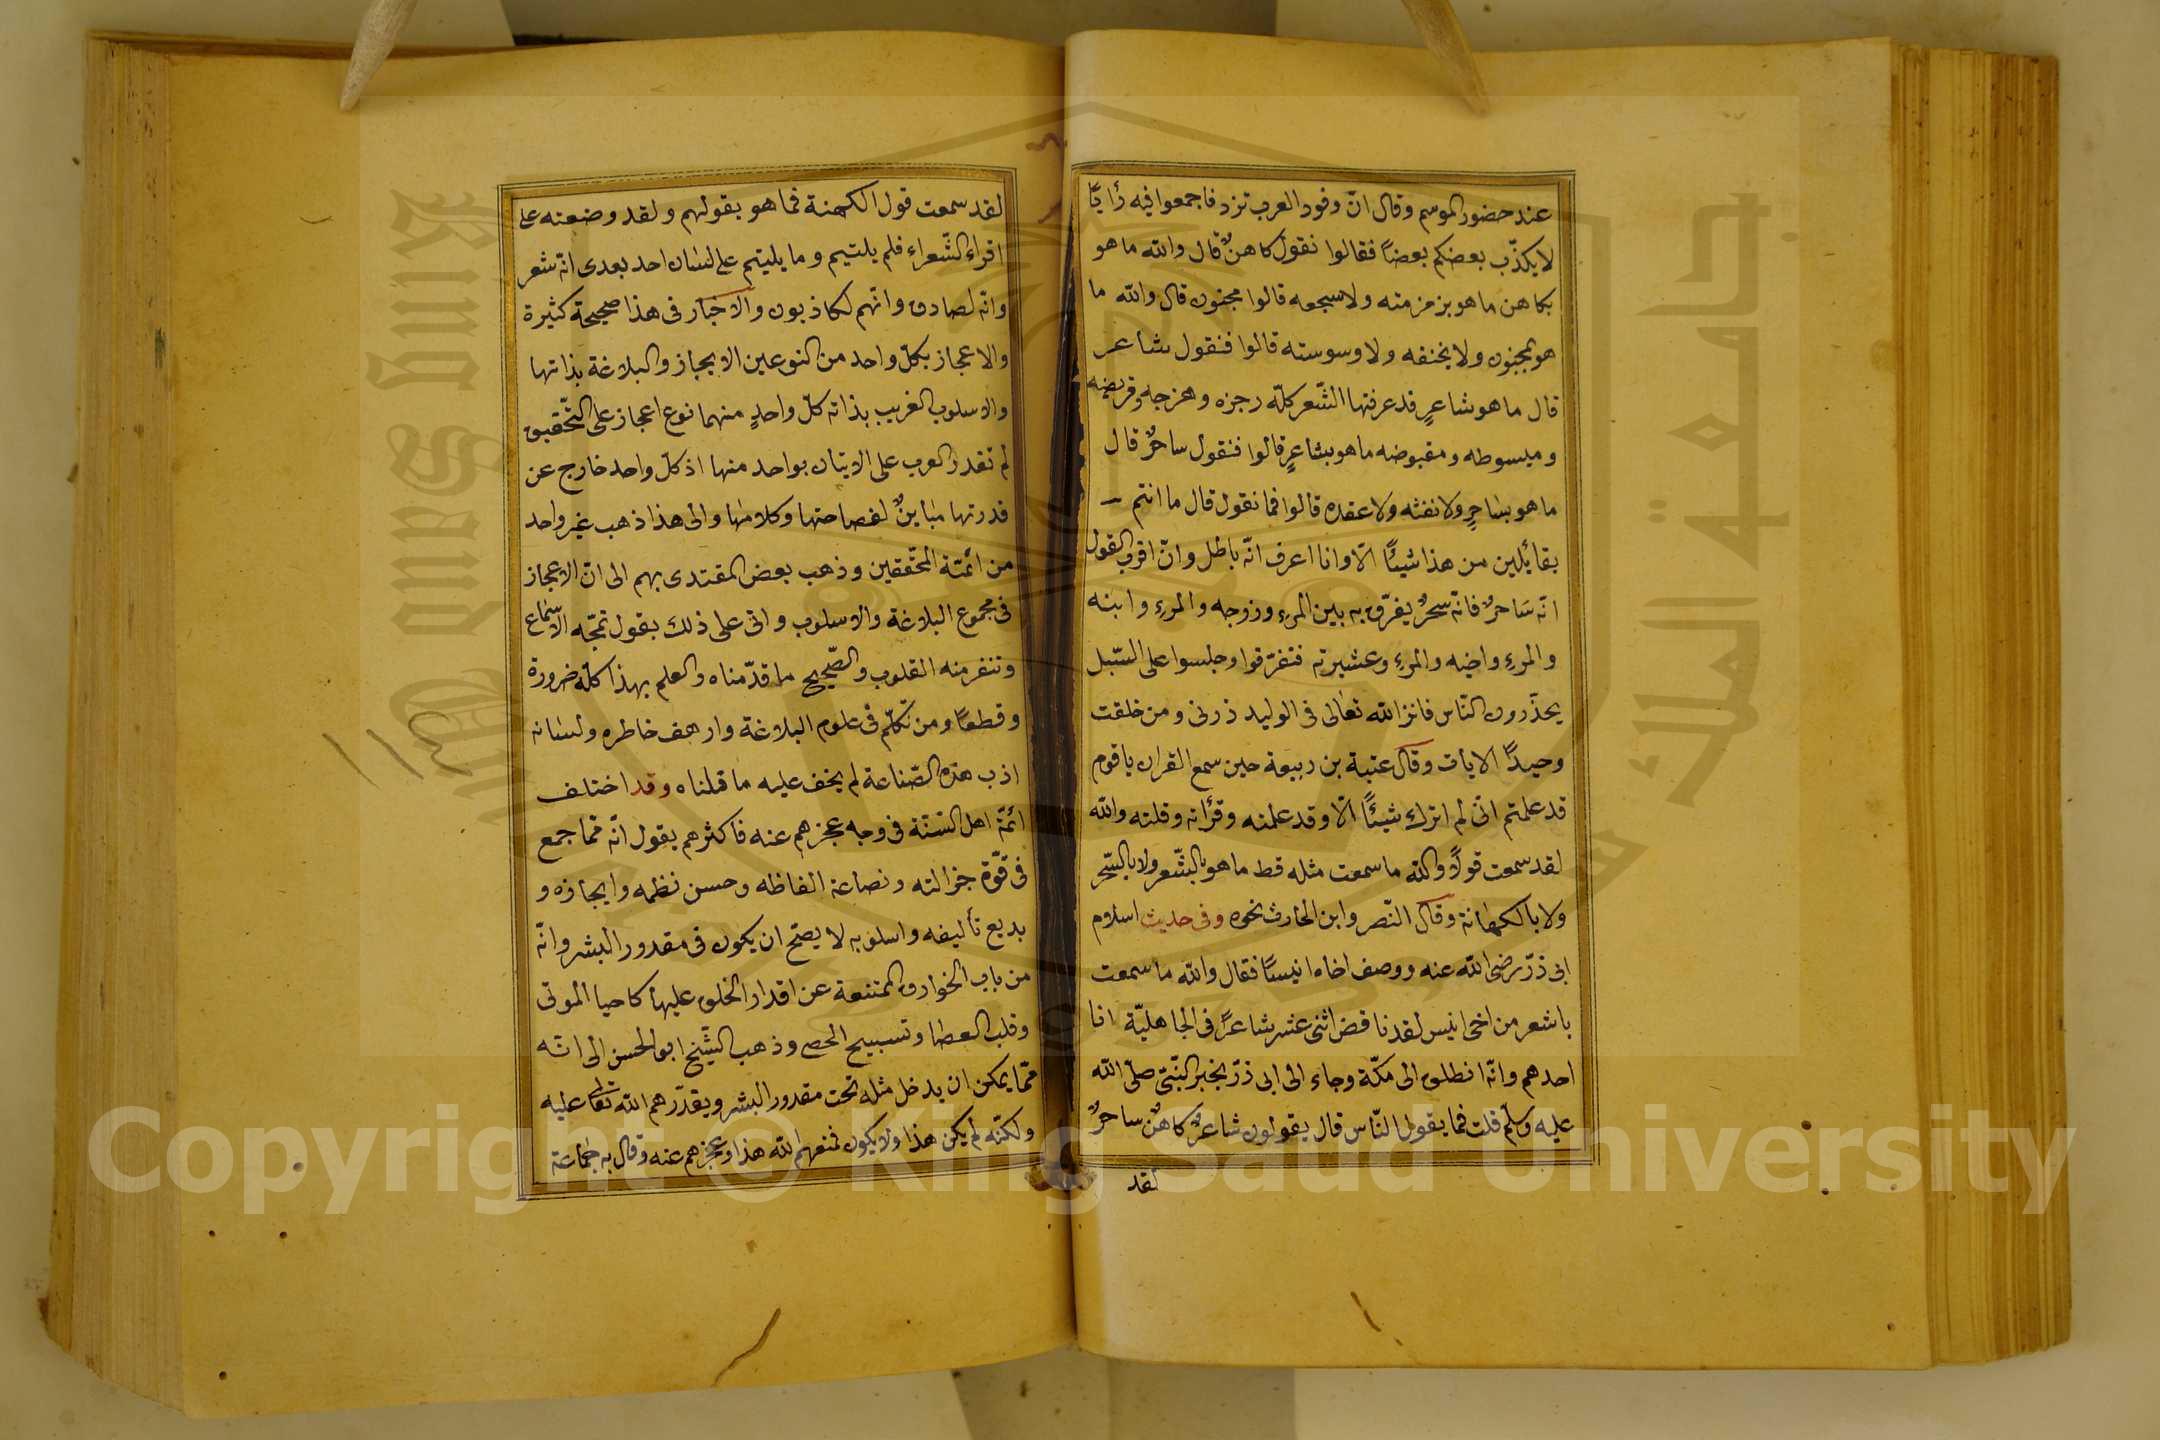 عند حضور الموسم وقال انّ وفود العرب ترد فاجمعوا فيه رأيًا
لا يكذّب بعضكم بعضًا فقالوا نقول كاهنٌ قال والله ما هو
بكاهن ما هو بزمزمته ولا سجعه قالوا مجنون قال والله ما
هو بمجنون ولا بخنقه ولا وسوسته قالوا فنقول شاعر
قال ما هو شاعرٍ قد عرفنا الشّعر كلّه رجزه وهزجه وقريضه
ومبسوطه ومقبوضه ما هو بشاعرٍ قالوا فنقول ساحرٌ قال
ما هو بساحرٍ ولا نفثه ولا عقده قالوا فما نقول قال ما انتم
بقائلين من هذا شيئًا الّا وانا اعرف انّه باطل وانّ اقرب القول
انّه ساحرٌ فانّه سحرٌ يفرّق به بين المرء وزوجه والمرء وابنه
والمرء واخيه والمرء وعشيرته فتفرّقوا وجلسوا على السّبل
يحذّرون النّاس فانزل الله تعالى فى الوليد ذرنى ومن خلقت
وحيدًا الايات وقال عتبة بن ربيعة حين سمع القران يا قوم
قد علمتم انّى لم اترك شيئًا الّا وقد علمته وقرأته وقلته والله
لقد سمعت قولًا والله ما سمعت مثله قط ما هو بالشّعر ولا بالسّحر
ولا بالكهانة وقال النّضر وابن الحارث نحوه وفى حديث اسلام
ابى ذرّ رضى الله عنه ووصف اخاه انيسًا فقال والله ما سمعت
باشعر من اخى انيس لقد ناقض اثنى عشر شاعرًا فى الجاهليّة انا
احدهم وانّه انطلق الى مكّة وجاء الى ابى ذرّ بخبر النّبىّ صلّى الله
عليه وسلّم قلت فما يقول النّاس قال يقولون شاعرٌ كاهنٌ ساحرٌ
لقد
لقد سمعت قول الكهنة فما هو بقولهم ولقد وضعته على
اقراء الشّعراء فلم يلتيم وما يليتم على لسان احد بعدى انّه شعر
وانّه لصادق وانّهم لكاذبون والاخبار فى هذا صحيحة كثيرة
والاعجاز بكلّ واحد من النوعين الايجاز والبلاغة بذاتها
والاسلوب الغريب بذاته كلّ واحدٍ منهما نوع اعجاز على التّحقيق
لم تقدر العرب على الاتيان بواحد منها اذ كلّ واحد خارج عن
قدرتها مباينٌ لفصاحتها وكلامها والى هذا ذهب غير واحد
من ائمّة المحقّقين وذهب بعض المقتدى بهم الى انّ الاعجاز
فى مجموع البلاغة والاسلوب واتى على ذلك بقول تمجّه الاسماع
وتنفر منه القلوب والصّحيح ما قدّمناه والعلم بهذا كلّه ضرورة
وقطعًا ومن تكلّم فى علوم البلاغة وارهف خاطره ولسانه
ادب هذه الصّناعة لم يخف عليه ما قلناه وقد اختلف
ائمّة اهل السّنّة فى وجه عجزهم عنه فاكثرهم يقول انّه ممّا جمع
فى قوّة جزالته ونصاعة الفاظه وحسن نظمه وايجازه و
بديع تأليفه واسلوبه لا يصحّ ان يكون فى مقدور البشر وانّه
من باب الخوارق الممتنعة عن اقدار الخلق عليها كاحيا الموتى
وقلب العصا وتسبيح الحصى وذهب الشّيخ ابو الحسن الى انّه
ممّا يمكن ان يدخل مثله تحت مقدور البشر ويقدّرهم الله تعالى عليه
ولكنّه لم يكن هذا ولا يكون فمنعهم الله هذا وعجزهم عنه وقال به جماعة
جامعة الملك سعود
King Saud University
Copyright © King Saud University